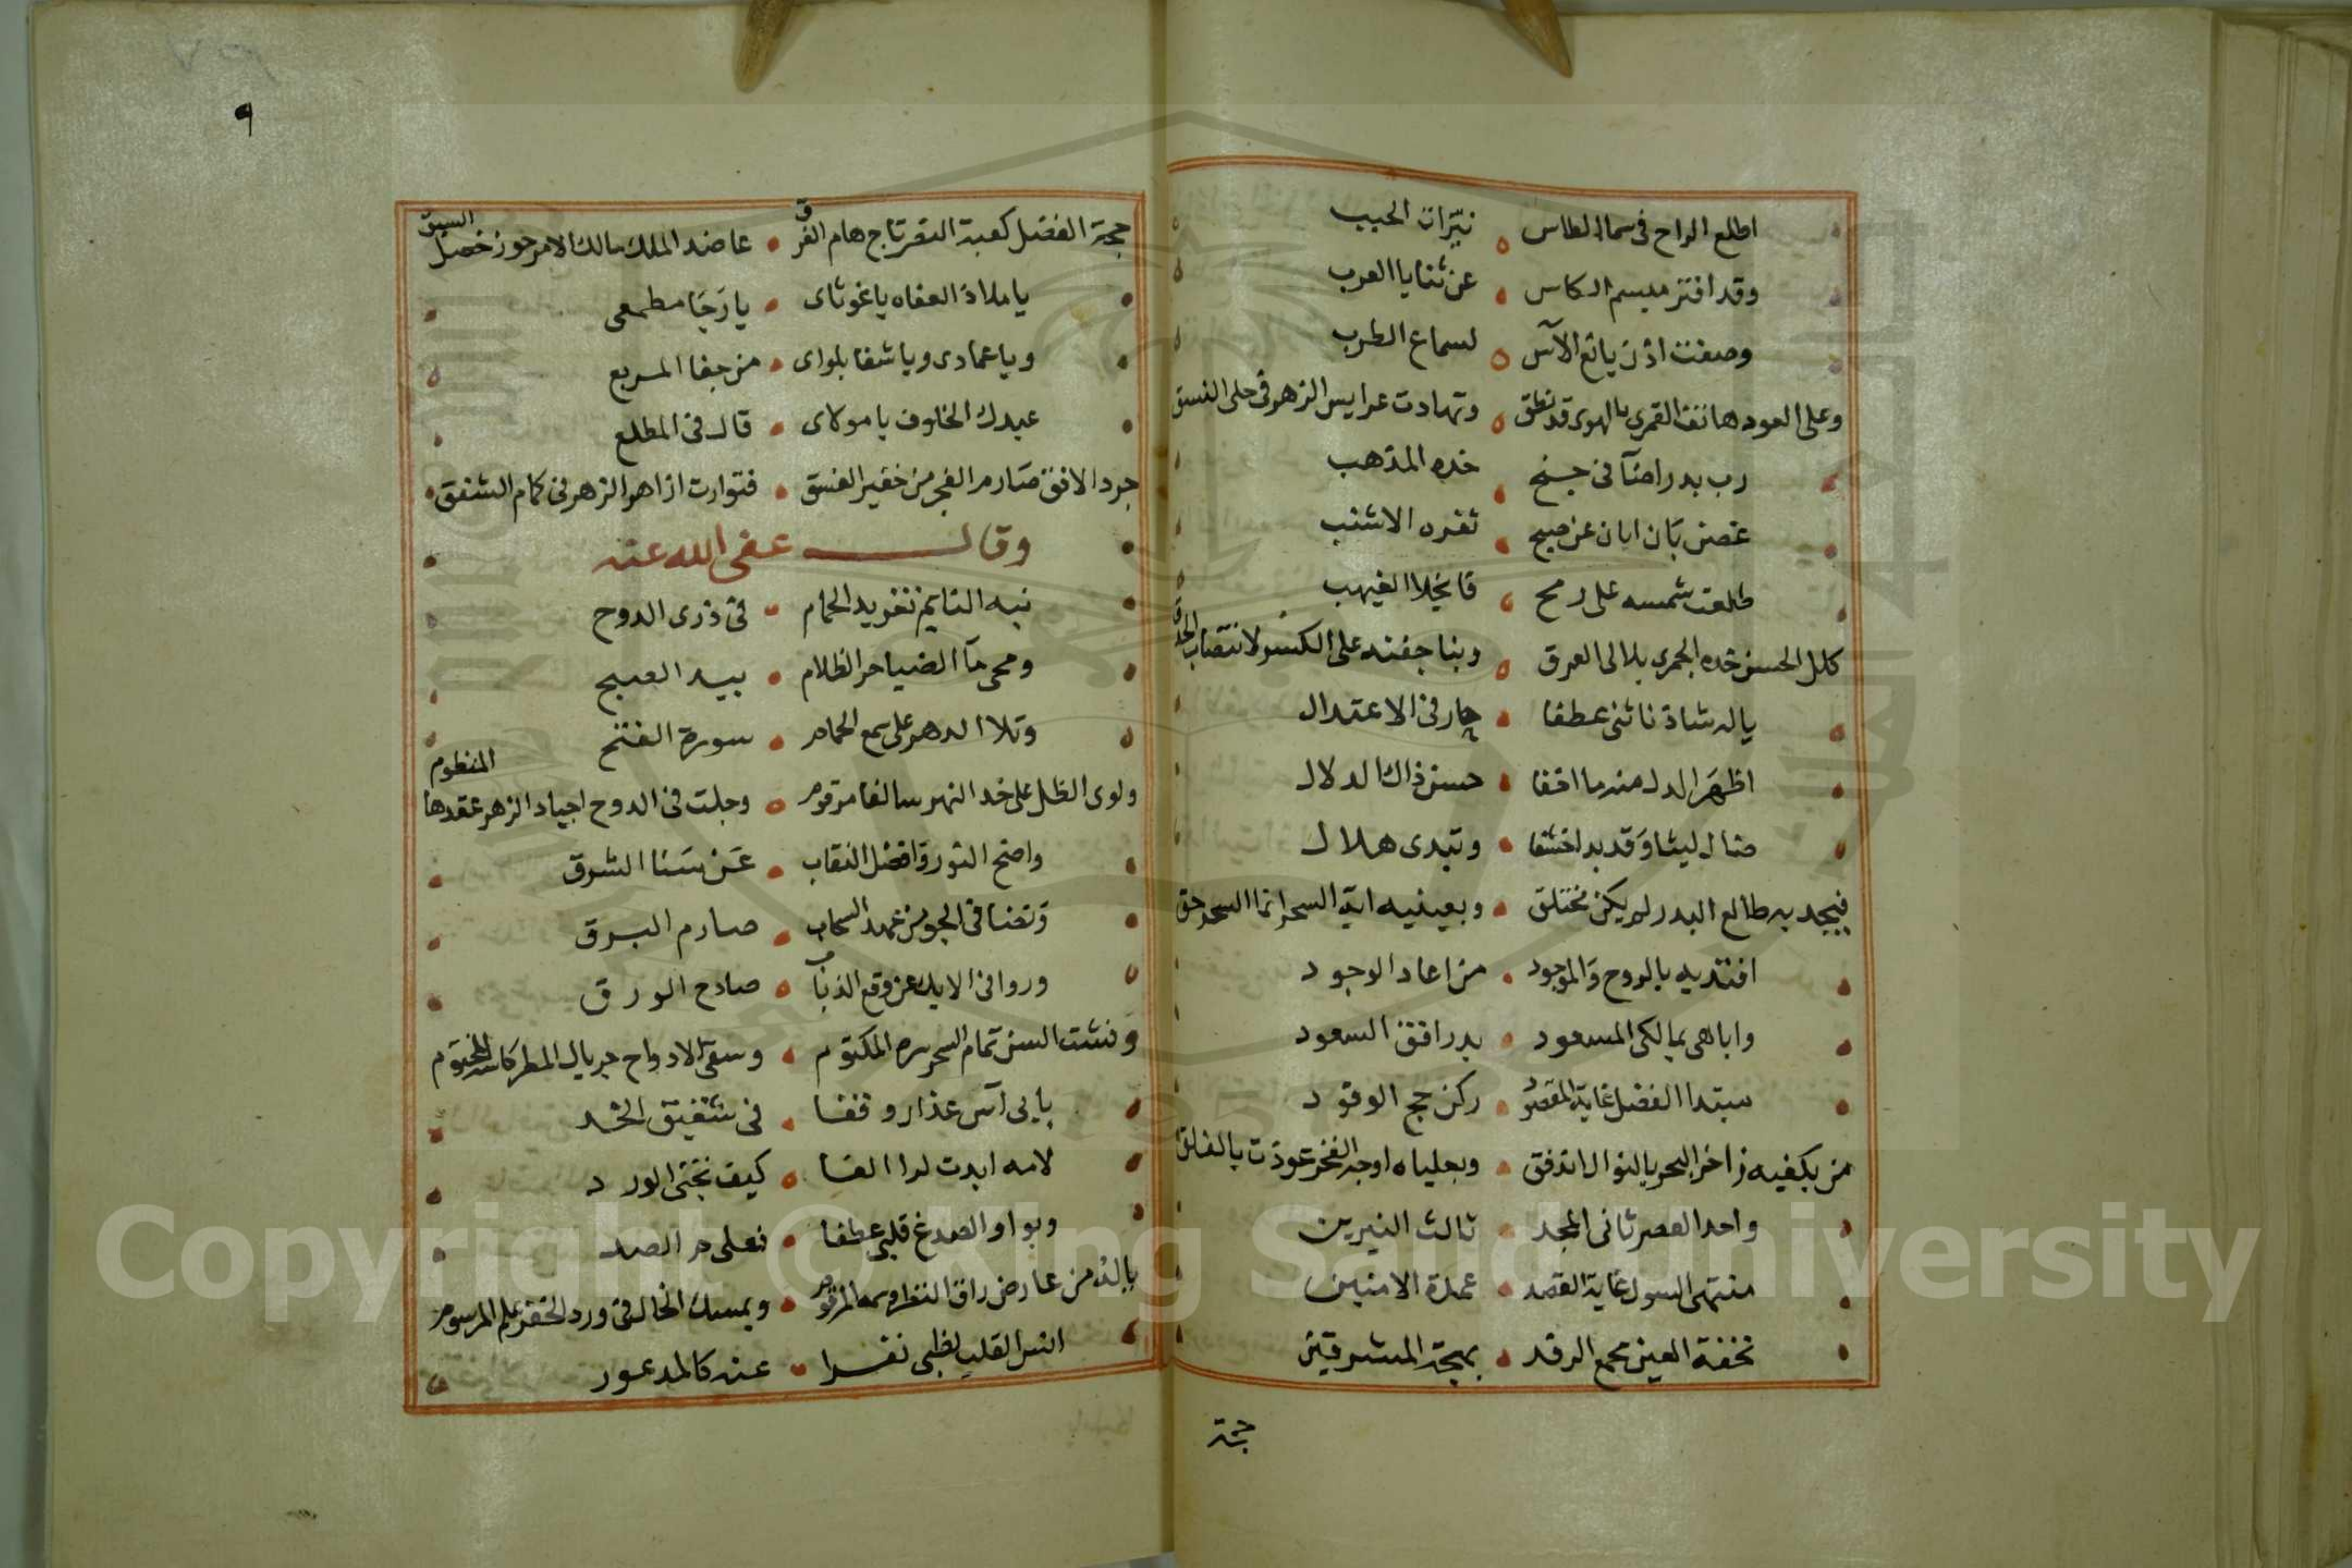 اطلع الراح فى سما الطاس نيّرات الحبب
وقد افتر مبسم الكاس عن ثنايا العرب
وصغت اذن يانع الآس لسماع الطرب
وعلى العود هاتف القمرى بالهوى قد نطق وتهادت عرايس الزهر فى حلى النسق
رب بدر اضآ فى جنح خده المذهب
غصن بَان ابان عن صبح ثغره الاشنب
طلعت شمسه على رمح فانجلا الغيهب
كلل الحسن خده الجمرى بلالى العرق وبنا جفنه على الكسر لانتصاب الحدق
ياله شادنا ثنى عطفا جار فى الاعتدال
اظهَر الدل منه ما اخفا حسن ذاك الدلال
صال ليثا وَقد بدا خشفا وتبدى هلال
فبجيد به طالع البدر لم يكن مختلق وبعينيه اية السحر انما السحر حق
افتديه بالروح وَالموجود من اعاد الوجود
واباهى بمالكى المسعود بدر افق السعود
مبتدا الفضل غاية المقصود ركن حج الوفود
من بكفيه زاخر البحر بالنوال اندفق وبعلياه اوجه الفخر عوذت بالفلق
واحد العصر ثانى المجد ثالث النيرين
منتهى السول غاية القصد عمدة الامنين
تحفة العين مجمع الرفد بهجة المشرقين
حجة
٩
حجة الفضل كعبة البقر تاج هام الفرق عاضد الملك مالك الامر حوز خصل السبق
ياملاذ العفاه ياغوثاى يا رَجَا مطمعى
وياعمادى وياشفا بلواى من جفا المربع
عبدك الخلوف يامولاى قال فى المطلع
جرد الافق صَارم الفجر من خفير الغسق فتوارت ازاهر الزهر فى كمام الشفق
وقال عفى الله عنه
نبه النايم تغريد الحمام فى ذرى الدوح
ومحى مآ الضيا حر الظلام بيد الصبح
وتلا الدهر على سمع الحمام سورة الفتح
ولوى الظل على خد النهر سالفا مرقوم وجلت فى الدوح اجياد الزهر عقدها المنظوم
واضح النور وَافضل النقاب عَن سَنا الشرق
وَتضنا فى الجو من غمد السحاب صارم البرق
وروا فى الايك عن وقع الذباب صادح الورق
وَفشت السن تمام السحر سره المكتوم وسقى الادواح جريال المطر كاسه المختوم
بابى آس عذار وقفا فى شقيق الخد
لامه ابدت لدا الفا كيف نجتنى الورد
وبواو الصدغ قلبى عطفا فعلى م الصد
بالذ من عارض راق النظر وسمه المرقوم وبمسك الخال فى ورد الخفر علم المرسوم
انس القلب لظبى نفرا عنه كالمدعور
Copyright © King Saud University